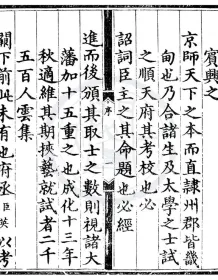 賓興之
京師天下之本而直隷州郡皆畿
甸也乃合諸生及太學之士試
之順天府其考校也必
詔詞臣主之其命題也必經
進而後頒其取士之數則視諸大
藩加十五重之也成化十三年
秋適維其期挾藝就試者二千
五百人雲集
闕下前此未有也府丞臣英以考